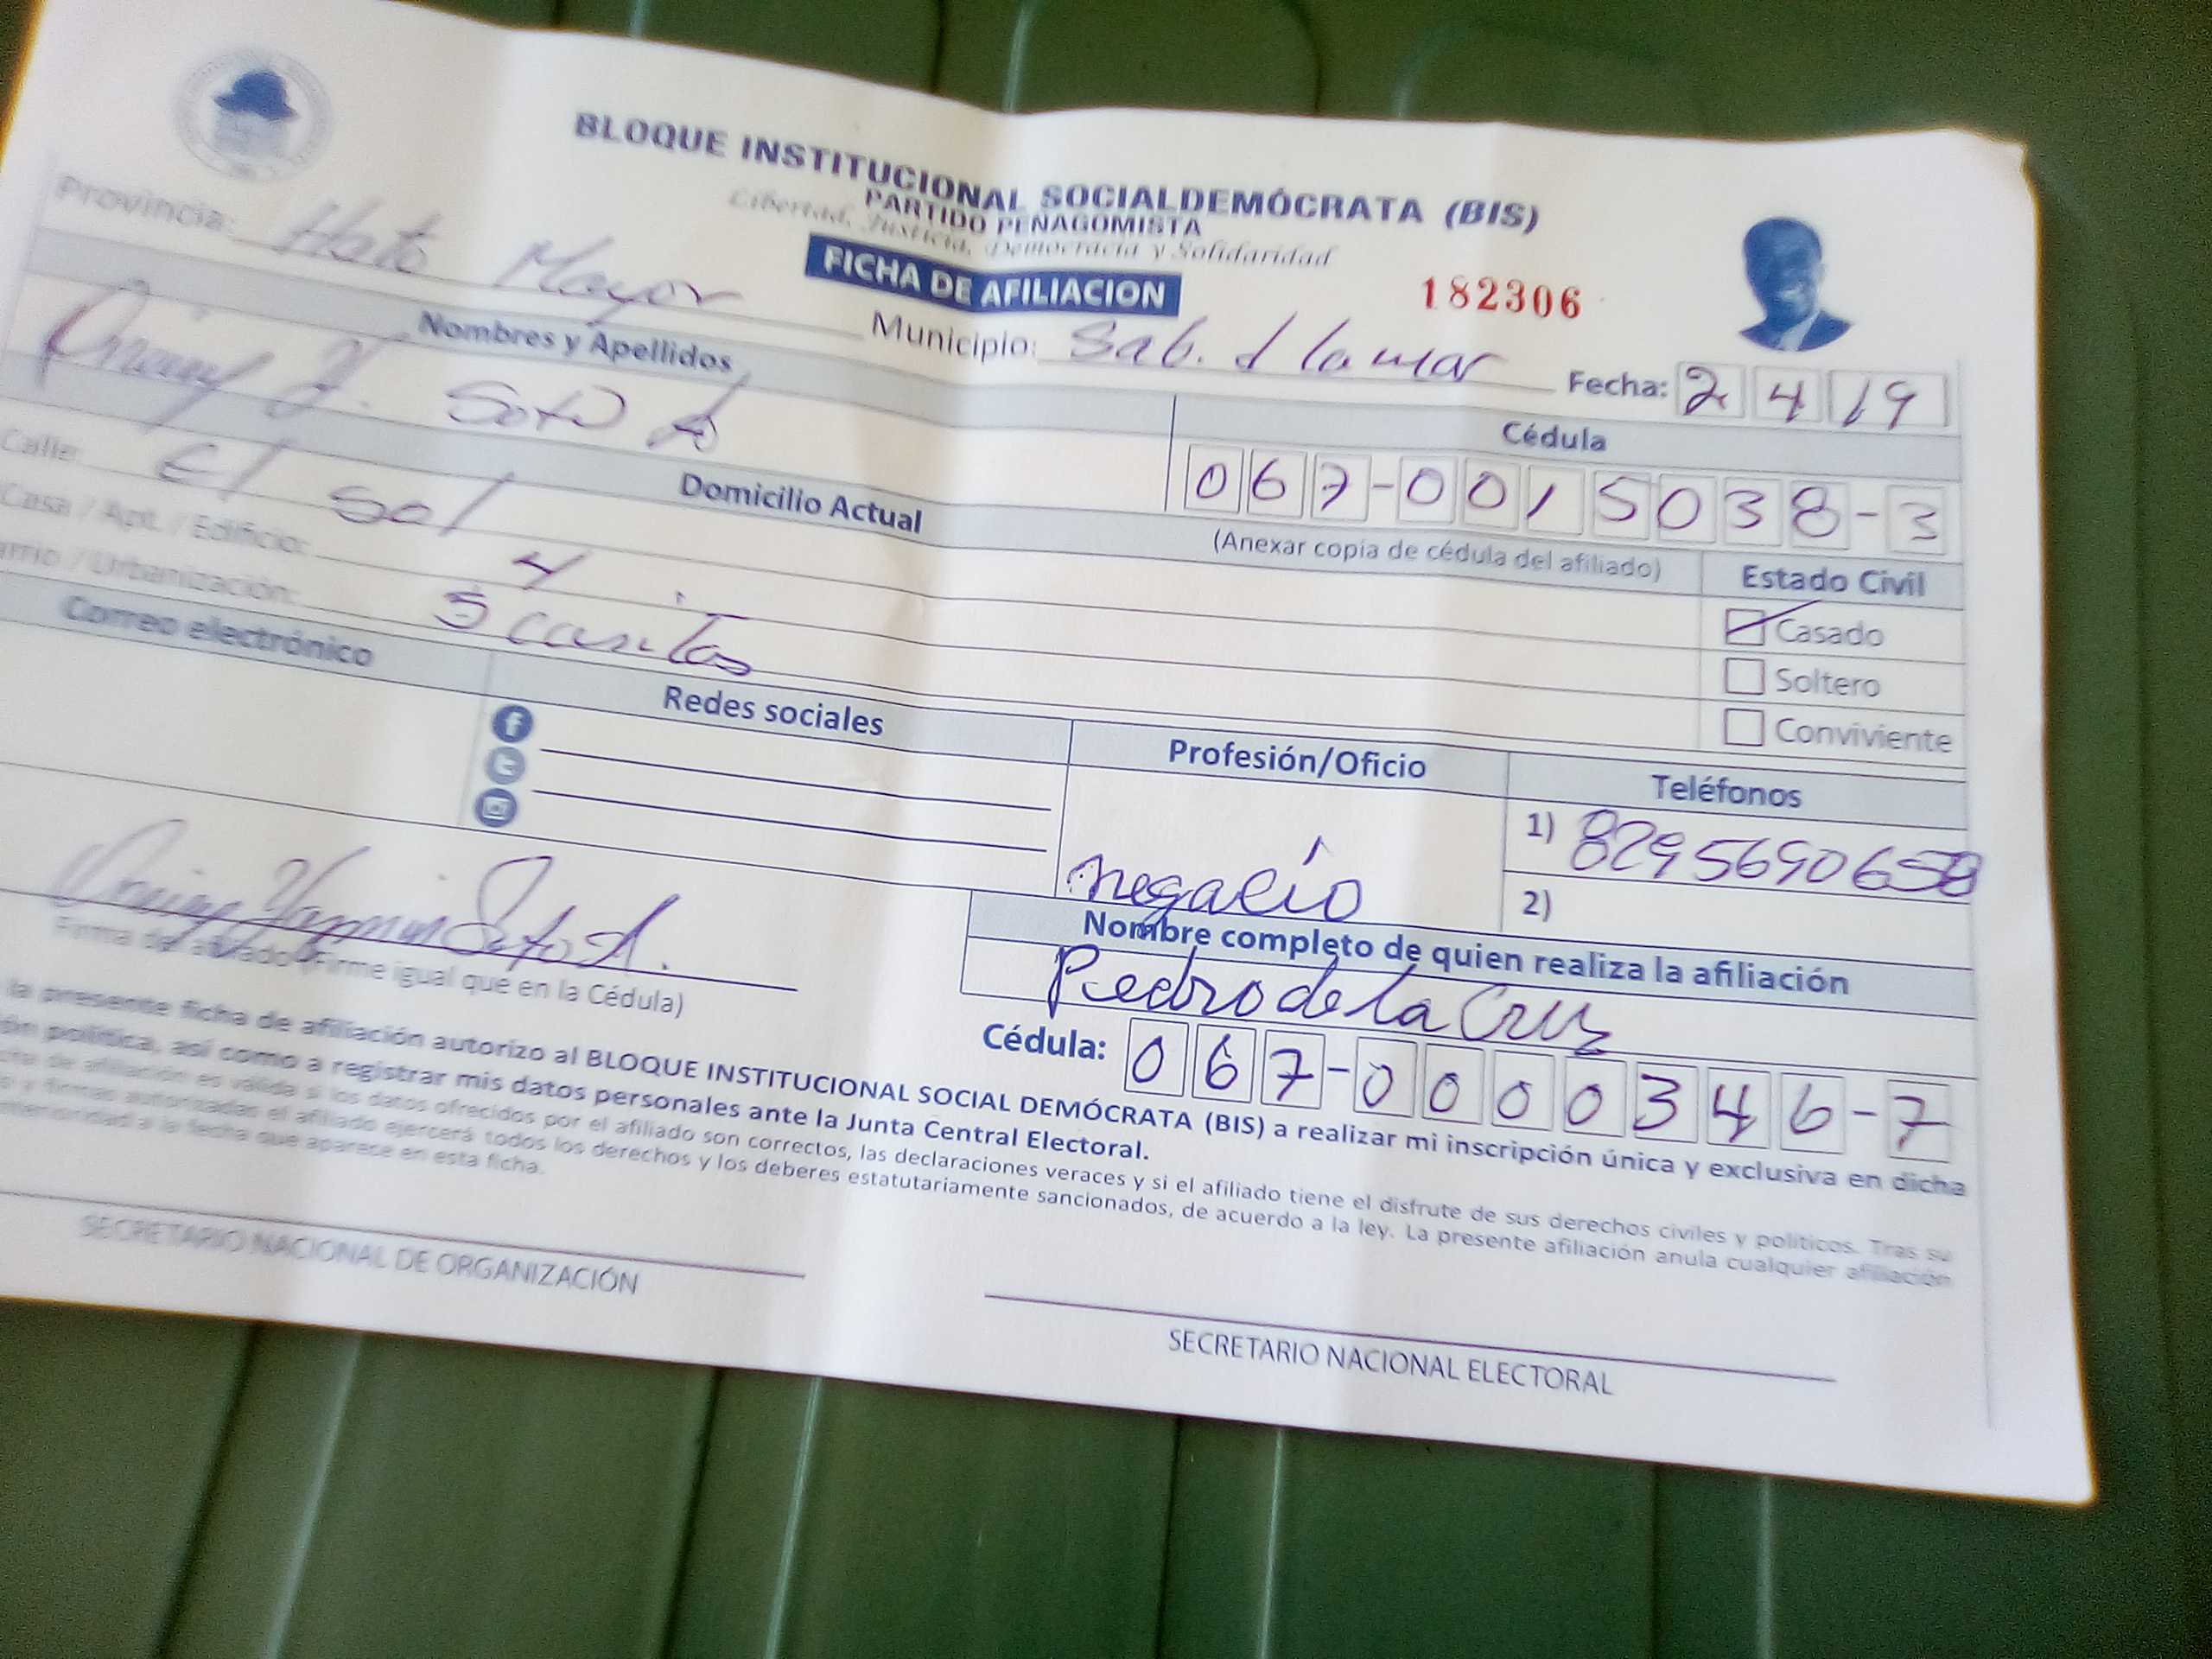 BLOQUE INSTITUCIONAL SOCIALDEMÓCRATA (BIS)
PARTIDO PEÑAGOMISTA
Libertad, Justicia, Democracia y Solidaridad
FICHA DE AFILIACION
182306
Provincia: Hato Mayor
Municipio: Sab. d la mar
Fecha: 2 4 19
Nombres y Apellidos
Cédula
Y. Soto A
067-0015038-3
Domicilio Actual
(Anexar copia de cédula del afiliado)
Estado Civil
Calle: El Sol
Casado
Casa / Apt. / Edificio: 4
Soltero
Urbanización: 5 casitas
Conviviente
Correo electrónico
Redes sociales
Profesión/Oficio
Teléfonos
negocio
1) 8295690658
2)
Yasmin Soto A.
Firma del afiliado (Firme igual que en la Cédula)
Nombre completo de quien realiza la afiliación
Pedro de la Cruz
Cédula: 067-0000346-7
la presente ficha de afiliación autorizo al BLOQUE INSTITUCIONAL SOCIAL DEMÓCRATA (BIS) a realizar mi inscripción única y exclusiva en dicha
política, así como a registrar mis datos personales ante la Junta Central Electoral.
de afiliación es válida si los datos ofrecidos por el afiliado son correctos, las declaraciones veraces y si el afiliado tiene el disfrute de sus derechos civiles y políticos. Tras su
y firmas autorizadas el afiliado ejercerá todos los derechos y los deberes estatutariamente sancionados, de acuerdo a la ley. La presente afiliación anula cualquier afiliación
a la fecha que aparece en esta ficha.
SECRETARIO NACIONAL DE ORGANIZACIÓN
SECRETARIO NACIONAL ELECTORAL